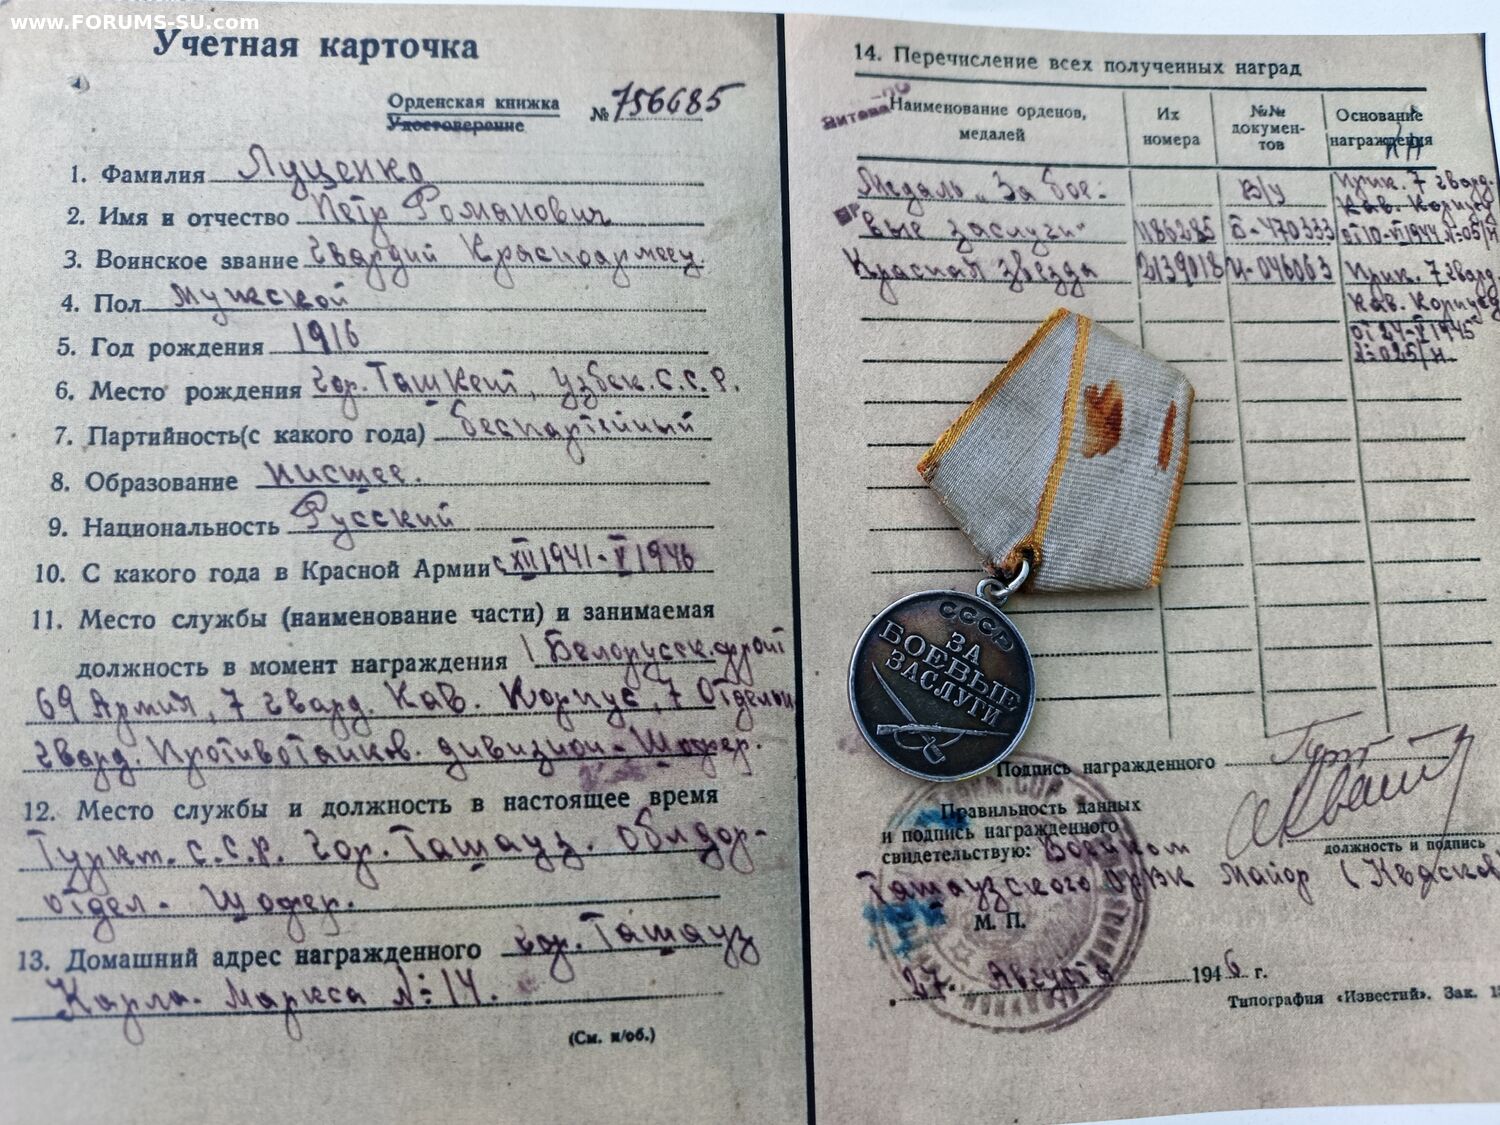 www.FORUMS-SU.com
Учетная карточка
Орденская книжка
Удостоверение
№ 756685
1. Фамилия Луценко
2. Имя и отчество Пётр Романович
3. Воинское звание Гвардий Красноармеец
4. Пол мужской
5. Год рождения 1916
6. Место рождения гор. Ташкент, Узбек. С.С.Р.
7. Партийность(с какого года) беспартейный
8. Образование нисшее.
9. Национальность Русский
10. С какого года в Красной Армии с XII 1941-V 1946
11. Место службы (наименование части) и занимаемая
должность в момент награждения 1 Белорусск. фронт
69 Армия, 7 гвард. Кав. Корпус, 7 Отдельн
гвард. Противотанков. дивизион - Шофер.
12. Место службы и должность в настоящее время
Туркт. С.С.Р. гор. Ташауз. облдор-
отдел - Шофер.
13. Домашний адрес награжденного гор. Ташауз
Карла. Маркса №14.
(См. н/об.)
14. Перечисление всех полученных наград
Наименование орденов, медалей
Их номера
№№ документов
Основание награждения
Медаль „За бое- в/у Прик. 7 гвард. Кав. Корпуса
вые заслуги" 1186285 Б-470333 от 10-VI 1944 №05/н
Красная звезда 2139018 И-046063 Прик. 7 гвард.
Кав. Корпуса
от 24-V 1945
№025/н
СССР
ЗА
БОЕВЫЕ
ЗАСЛУГИ
Подпись награжденного
Правильность данных
и подпись награжденного
свидетельствую: Военком
должность и подпись
Ташаузского ОРВК майор
М. П.
27. Августа 1946 г.
Типография «Известий». Зак.